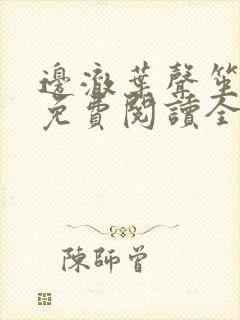 邊澈葉聲笙
免費閱讀全
陳師曾